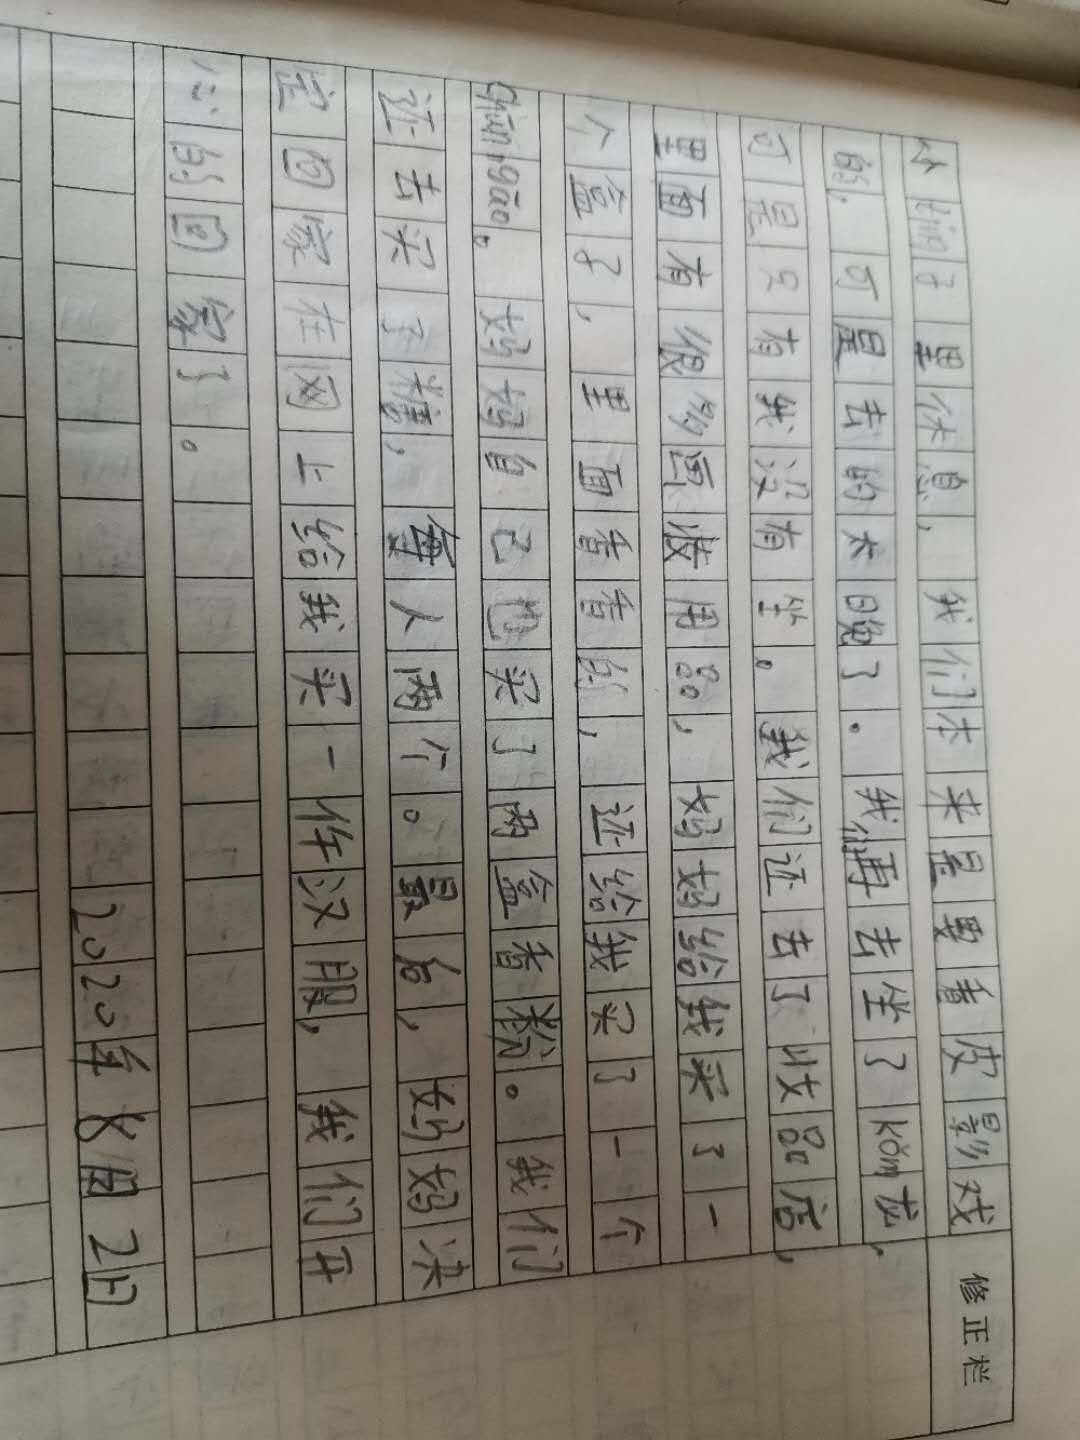 小tín子里休息,我们本来是要看皮影戏
的,可是去的太晚了。我们再去坐了kǒng龙,
可是只有我没有坐。我们还去了妆品店,
里面有很多画妆用品,妈妈给我买了一
个盒子,里面香香的,还给我买了一个
chún gāo。妈妈自己也买了两盒香粉。我们
还去买了糕,每人两个。最后,妈妈决
定回家在网上给我买一件汉服,我们开
心的回家了。
2020年8月2日
修正栏